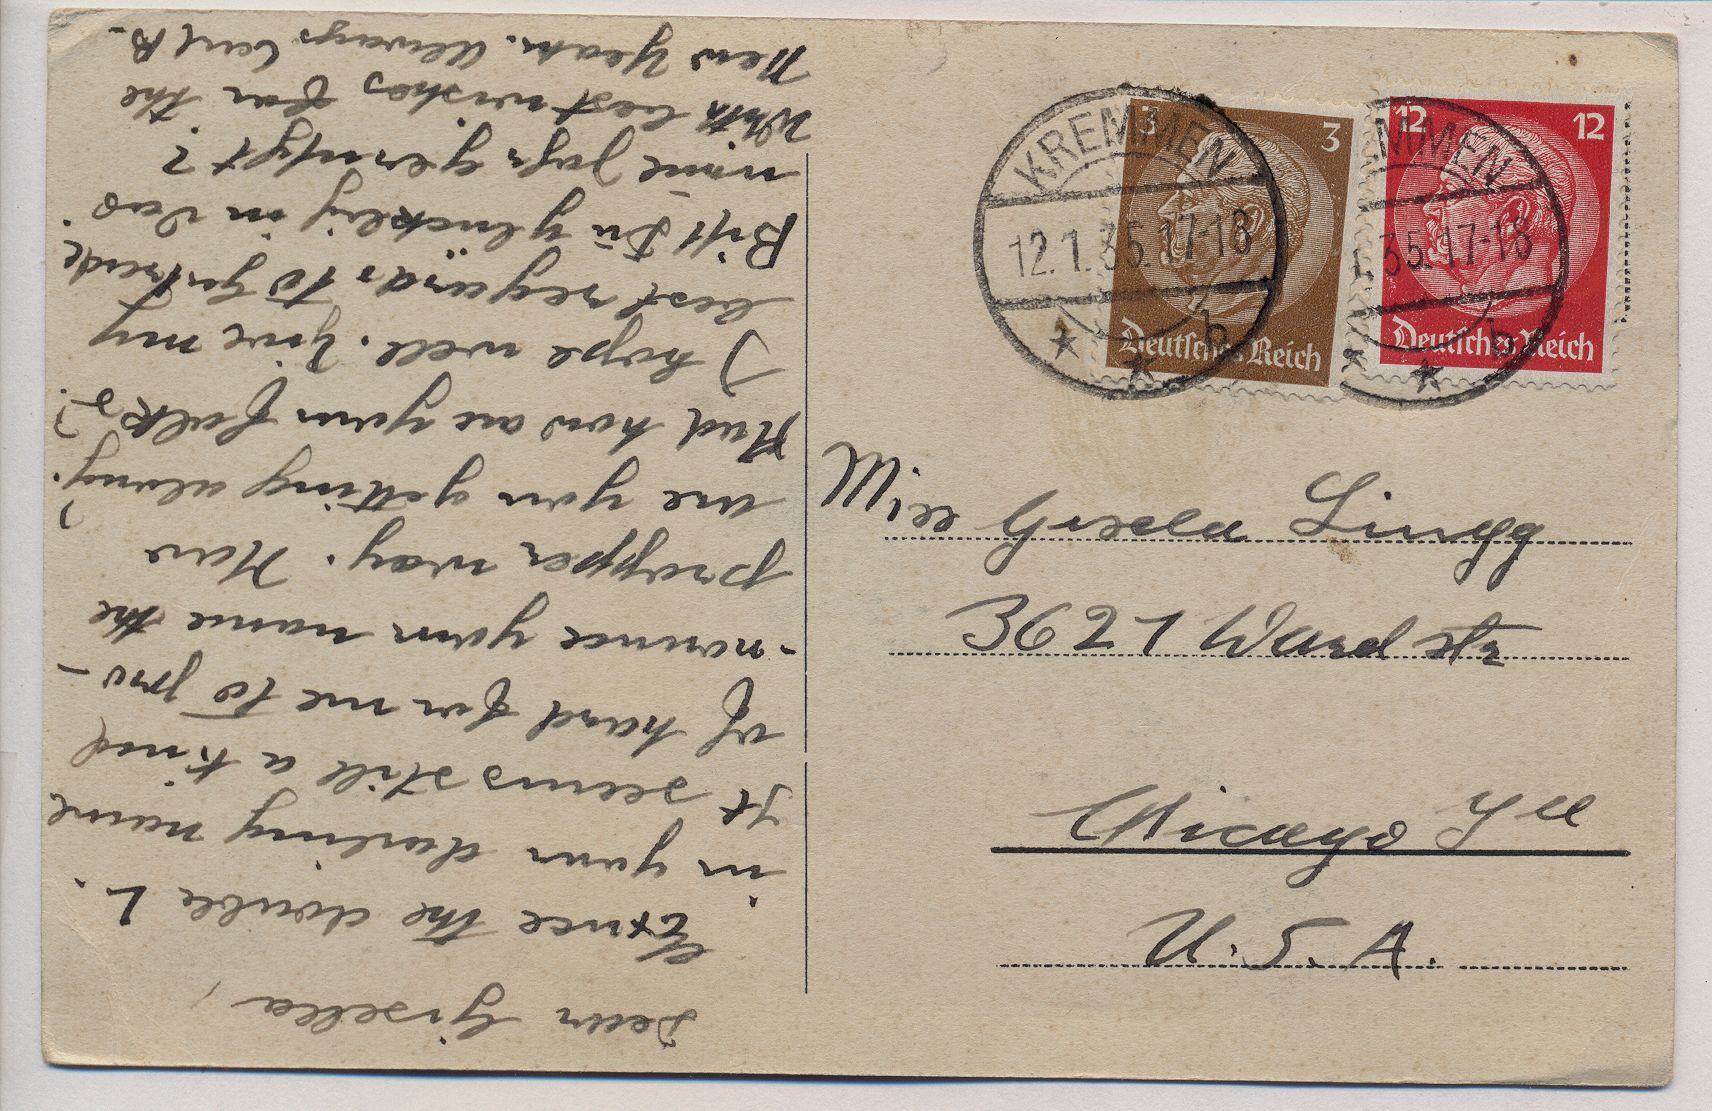 Dear Gisella,
the double L.
in your darling name
It seems still a kind
of hard for me to pro-
-nounce your name the
propper way. How
are you getting along?
And how are your folks?
I hope well. Give my
best regards to Gertrude.
Bist Du glücklig in das
nüne Jahr gerutscht?
With best wishes for the
New Year. Always Carl B.
KREMMEN
12.1.35.17-18
b
3 3
Deutsches Reich
MMEN
35.17-18
b
12 12
Deutsches Reich
Miss Gisela Lingg
3621 Ward str
Chicago Ill
U.S.A.